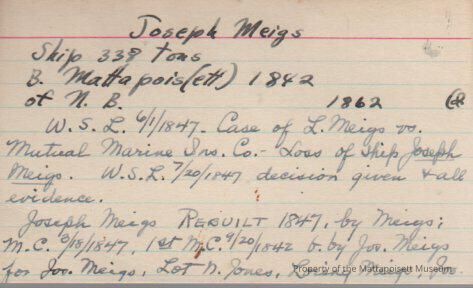 Joseph Meigs
Ship 338 tons
B. Mattapois(ett) 1842
of N. B. 1862
W.S.L. 6/1/1847. Case of L. Meigs vs.
Mutual Marine Ins. Co. - Loss of ship Joseph
Meigs. W.S.L. 7/20/1847 decision given & all
evidence.
Joseph Meigs REBUILT 1847, by Meigs;
M.C. /18/1847, 1st M.C. 9/20/1842 b. by Jos. Meigs
for Jos. Meigs, Lot N. Jones, Meigs, Jos.
Property of the Mattapoisett Museum